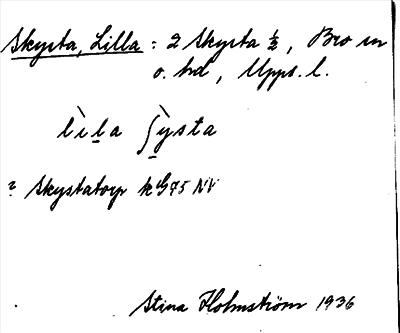 Skysta, Lilla : 2 Skysta ½, Bro sn
o. hd, Upps. l.
lìla ʃỳsta
= Skystatorp kG75 NV
Stina Holmström 1936